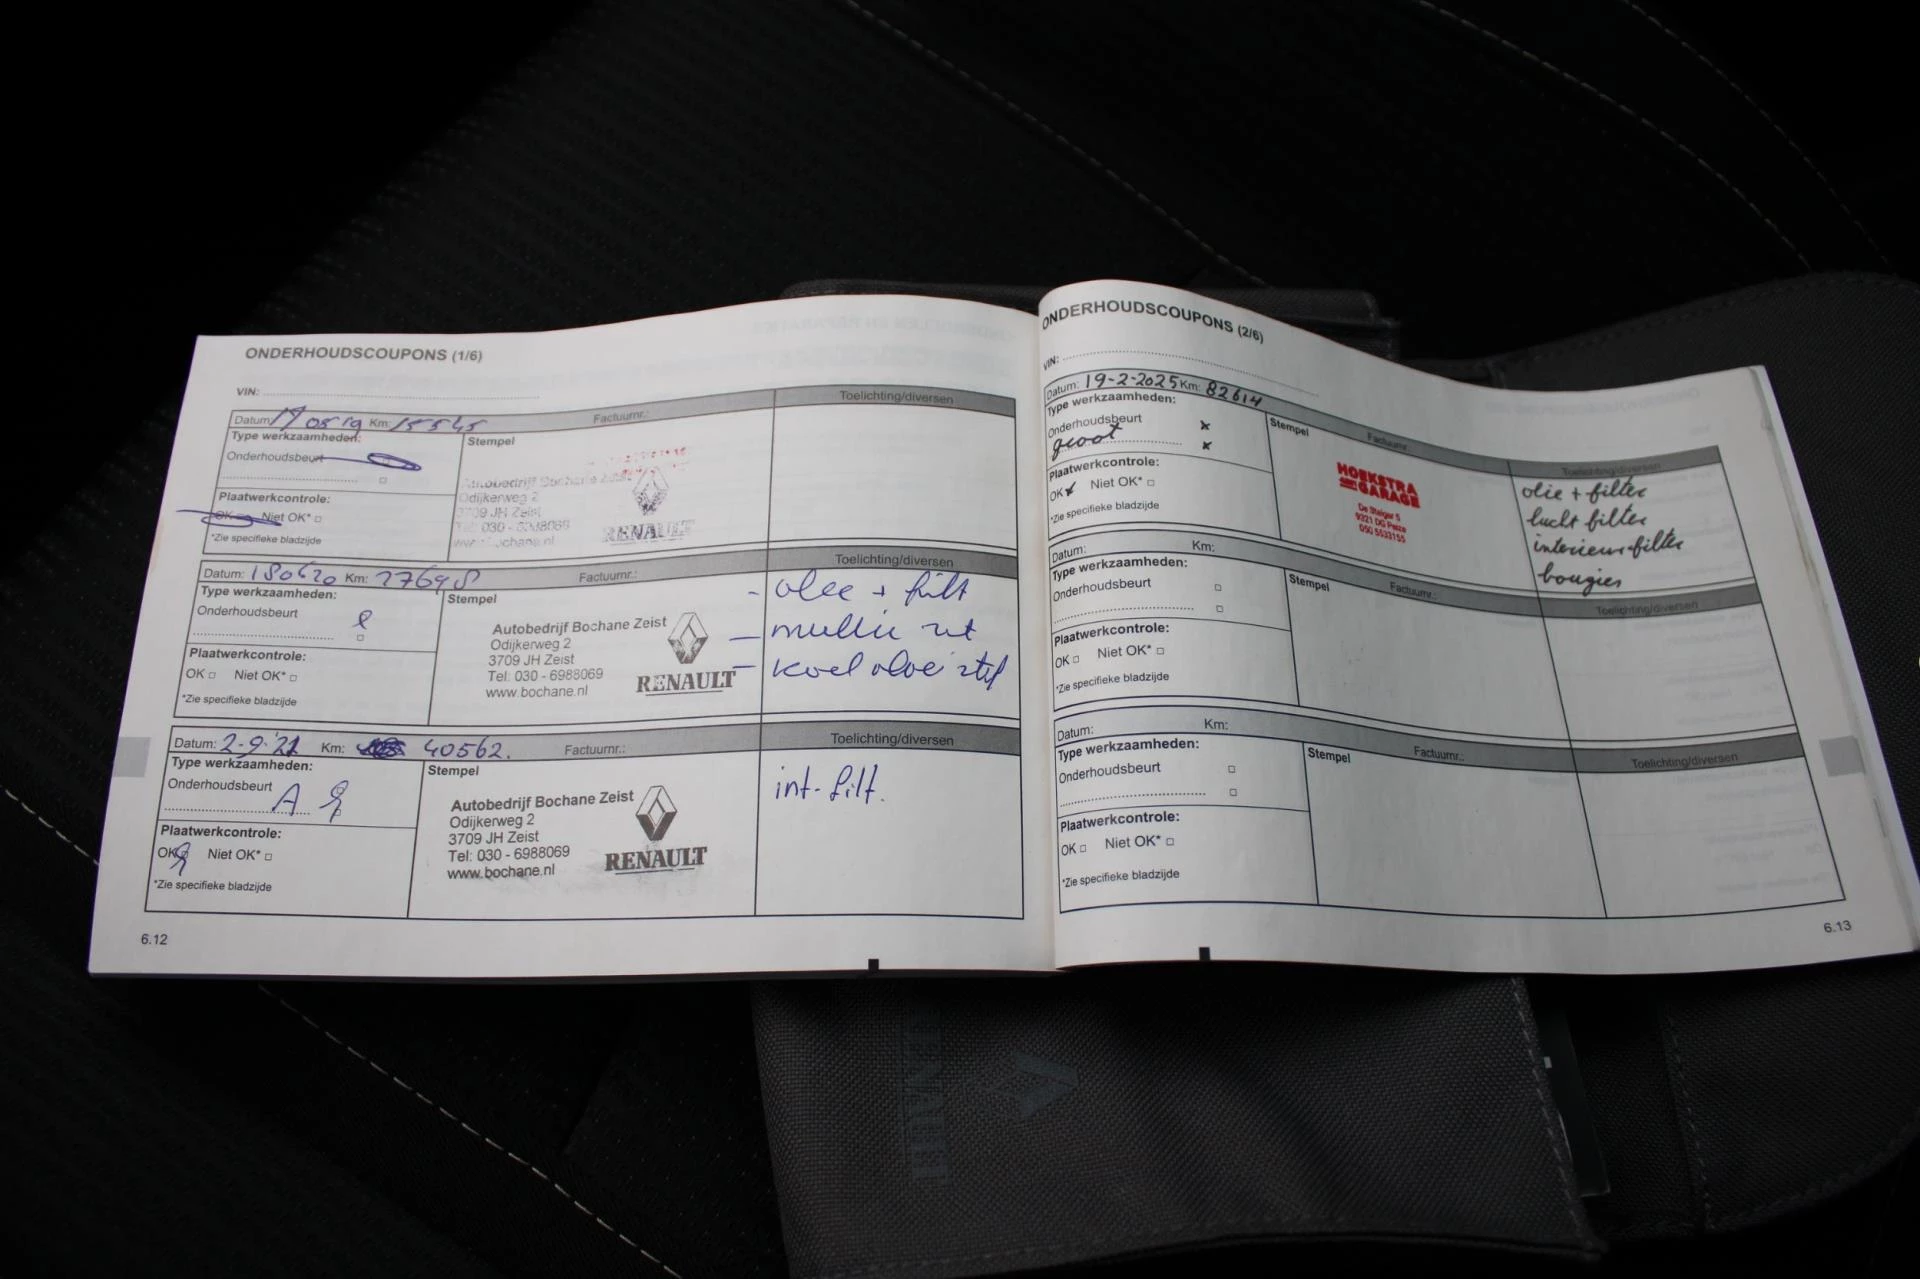 ONDERHOUDSCOUPONS (1/6)
VIN:
Datum: Km: 15545 Factuurnr.:
Toelichting/diversen
Type werkzaamheden:
Stempel
Onderhoudsbeurt
Autobedrijf Bochane Zeist
Odijkerweg 2
3709 JH Zeist
Tel: 030 - 6988069
www.bochane.nl
RENAULT
Plaatwerkcontrole:
OK Niet OK*
*Zie specifieke bladzijde
Datum: 180620 Km: 27698 Factuurnr.:
Toelichting/diversen
Type werkzaamheden:
Stempel
Onderhoudsbeurt
Autobedrijf Bochane Zeist
Odijkerweg 2
3709 JH Zeist
Tel: 030 - 6988069
www.bochane.nl
RENAULT
- olee + filt
-
- koel
Plaatwerkcontrole:
OK Niet OK*
*Zie specifieke bladzijde
Datum: 2-9-'21 Km: 40562. Factuurnr.:
Toelichting/diversen
Type werkzaamheden:
Stempel
Onderhoudsbeurt
A
Autobedrijf Bochane Zeist
Odijkerweg 2
3709 JH Zeist
Tel: 030 - 6988069
www.bochane.nl
RENAULT
int. filt.
Plaatwerkcontrole:
OK Niet OK*
*Zie specifieke bladzijde
6.12
ONDERHOUDSCOUPONS (2/6)
VIN:
Datum: 19-2-2025 Km: 82614
Factuurnr.:
Toelichting/diversen
Type werkzaamheden:
Stempel
Onderhoudsbeurt x
groot x
HOEKSTRA
GARAGE
De Steiger 5
9321 DG Peize
050 5533155
olie + filter
lucht filter
interieur filter
bougies
Plaatwerkcontrole:
OK Niet OK*
*Zie specifieke bladzijde
Datum: Km:
Factuurnr.:
Toelichting/diversen
Type werkzaamheden:
Stempel
Onderhoudsbeurt
Plaatwerkcontrole:
OK Niet OK*
*Zie specifieke bladzijde
Datum: Km:
Factuurnr.:
Toelichting/diversen
Type werkzaamheden:
Stempel
Onderhoudsbeurt
Plaatwerkcontrole:
OK Niet OK*
*Zie specifieke bladzijde
6.13
RENAULT